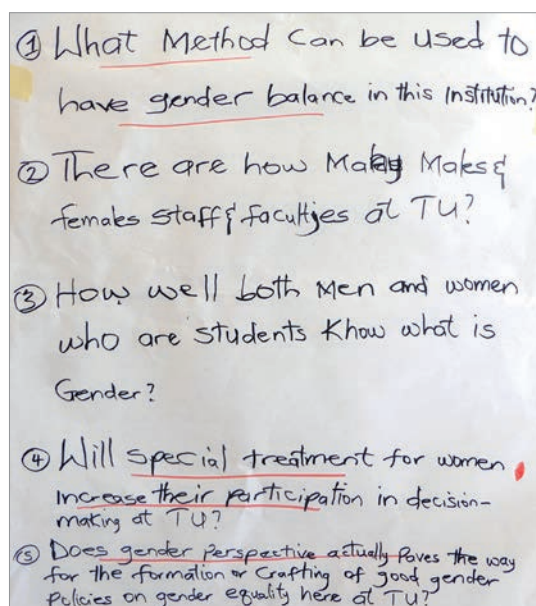 ① What Method Can be used to
have gender balance in this Institution?
② There are how Many Males &
females staff & faculties at TU?
③ How well both Men and women
who are students Know what is
Gender?
④ Will special treatment for women
increase their participation in decision-
making at TU?
⑤ Does gender perspective actually Paves the way
for the formation or Crafting of good gender
Policies on gender equality here at TU?